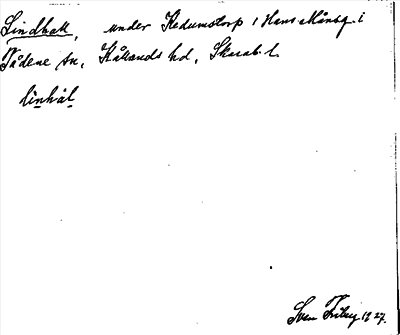 Lindbatt, under Kedumstorp 1 Hans Månsg. i
Tådene sn, Kållands hd, Skarab. l.
linbàt
Sven Friberg 1927.